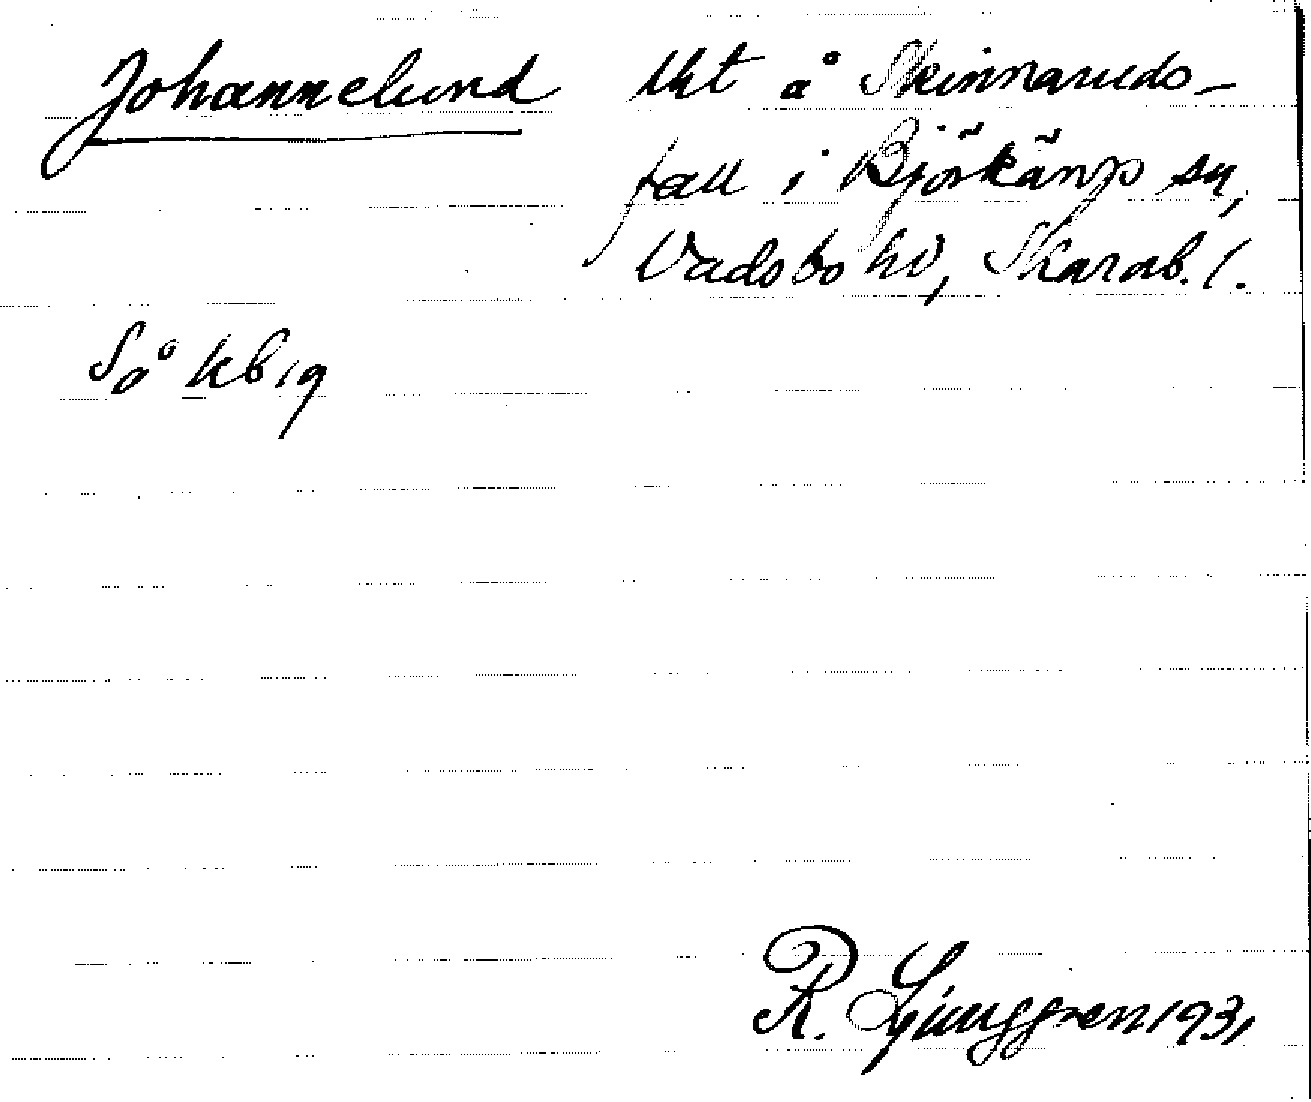 Johannelund lht å Skinnaruds-
fall i Björkäng sn,
Vadsbo hd, Skarab. l.
Så kb 19
R. Ljunggren 1931